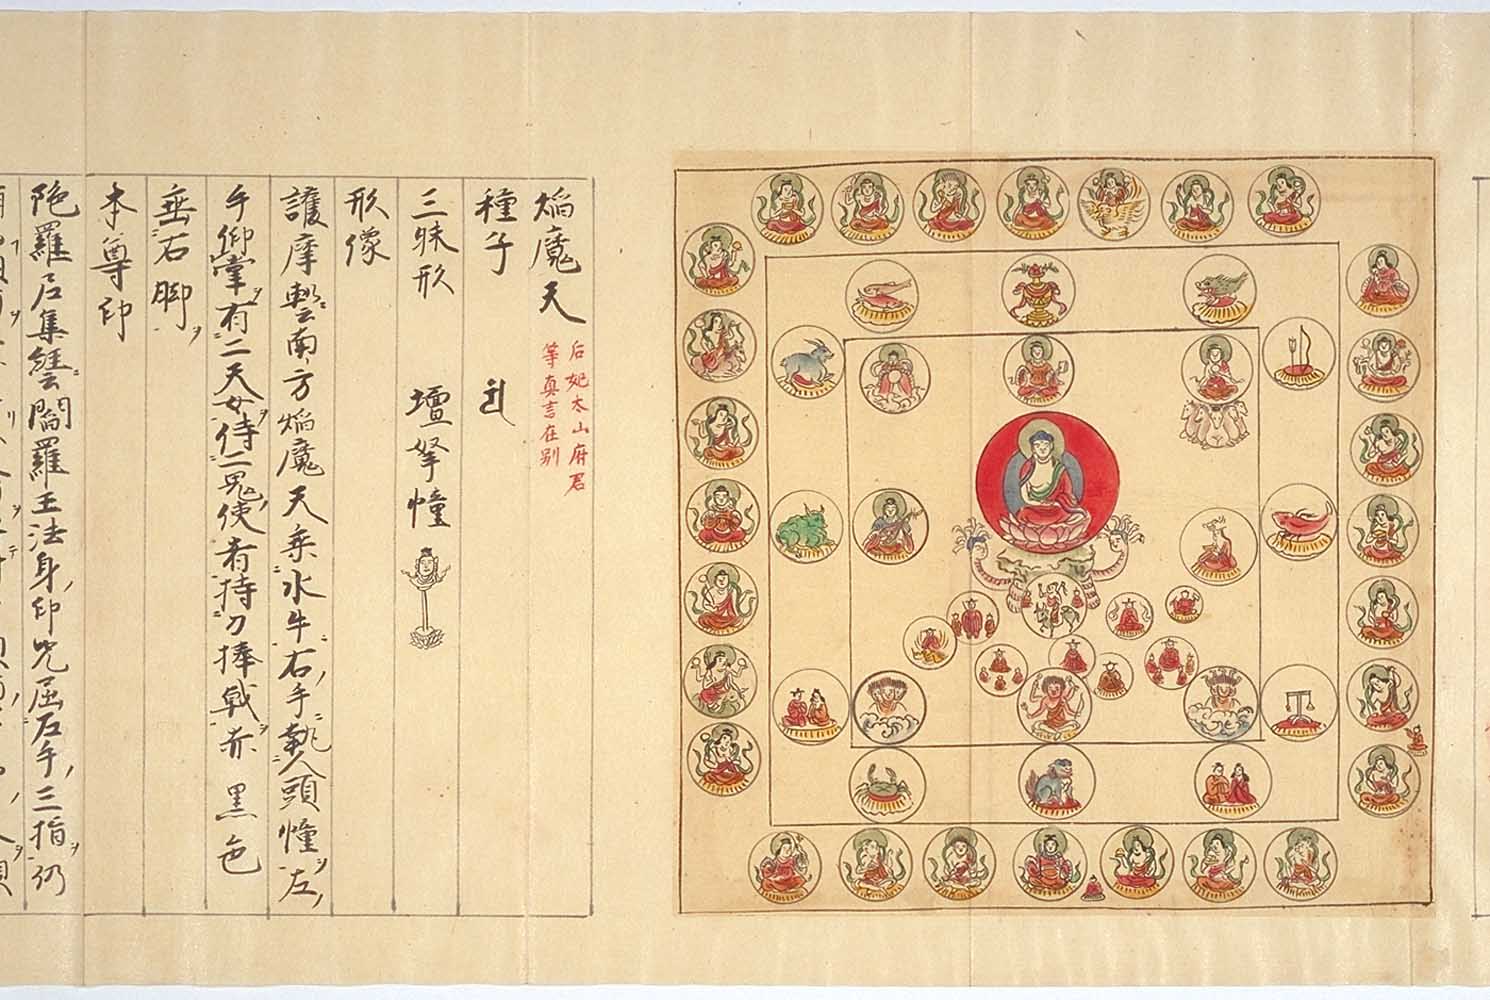 焔魔天
后妃太山府君
等真言在別
種子
三昧形 壇拏幢
形像
護摩軌云南方焔魔天乗水牛右手執人頭幢左
手仰掌有二天女侍二鬼使者持刀捧戟赤黒色
垂右脚
本尊印
陀羅尼集経云閻羅王法身印呪屈左手三指仍